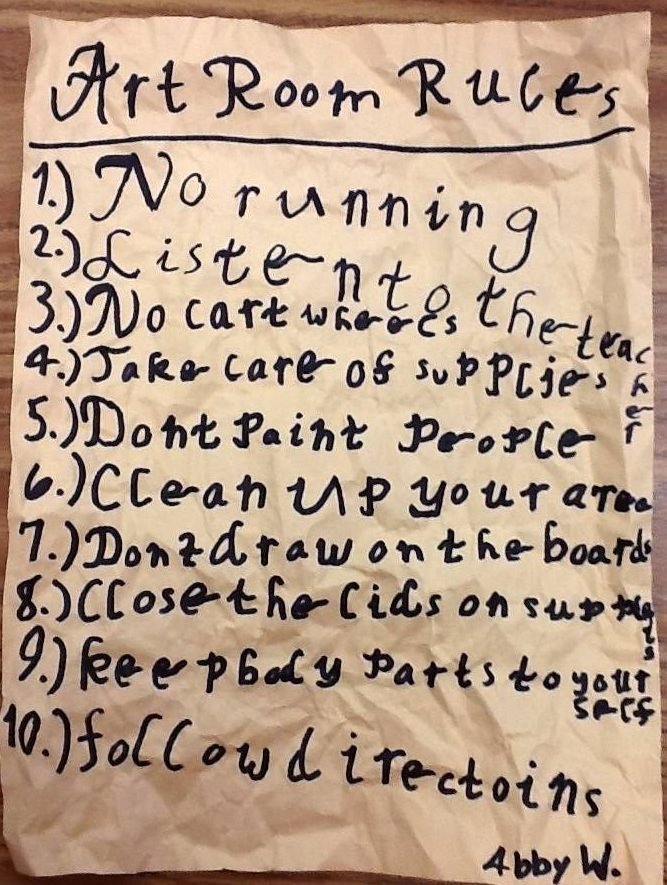 Art Room Rules
1.) No running
2.) Listen to the teacher
3.) No cartwheels
4.) Take care of supplies
5.) Dont Paint People
6.) Clean up your area
7.) Dont draw on the boards
8.) Close the lids on
9.) keep body parts to your self
10.) follow directoins
Abby W.